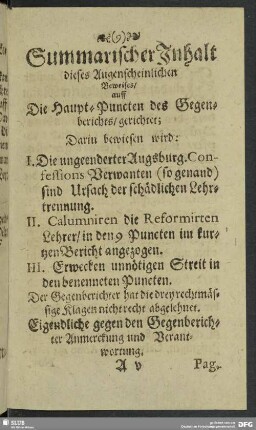 (9)
Summarischer Inhalt
dieses Augenscheinlichen
Beweises/
auff
Die Haupt-Puncten des Gegen-
berichtes/ gerichtet;
Darin bewiesen wird:
I. Die ungeenderter Augsburg. Con-
fessions Verwanten (so genand)
sind Ursach der schädlichen Lehr-
trennung.
II. Calumniren die Reformirten
Lehrer/ in den 9 Puncten im kur-
tzen Bericht angezogen.
III. Erwecken unnötigen Streit in
den benenneten Puncten.
Der Gegenberichter hat die drey rechtmäs-
sige Klagen nicht recht abgelehnet.
Eigendliche gegen den Gegenberich-
ter Anmerckung und Verant-
wortung.
A v Pag.
SLUB
DFG